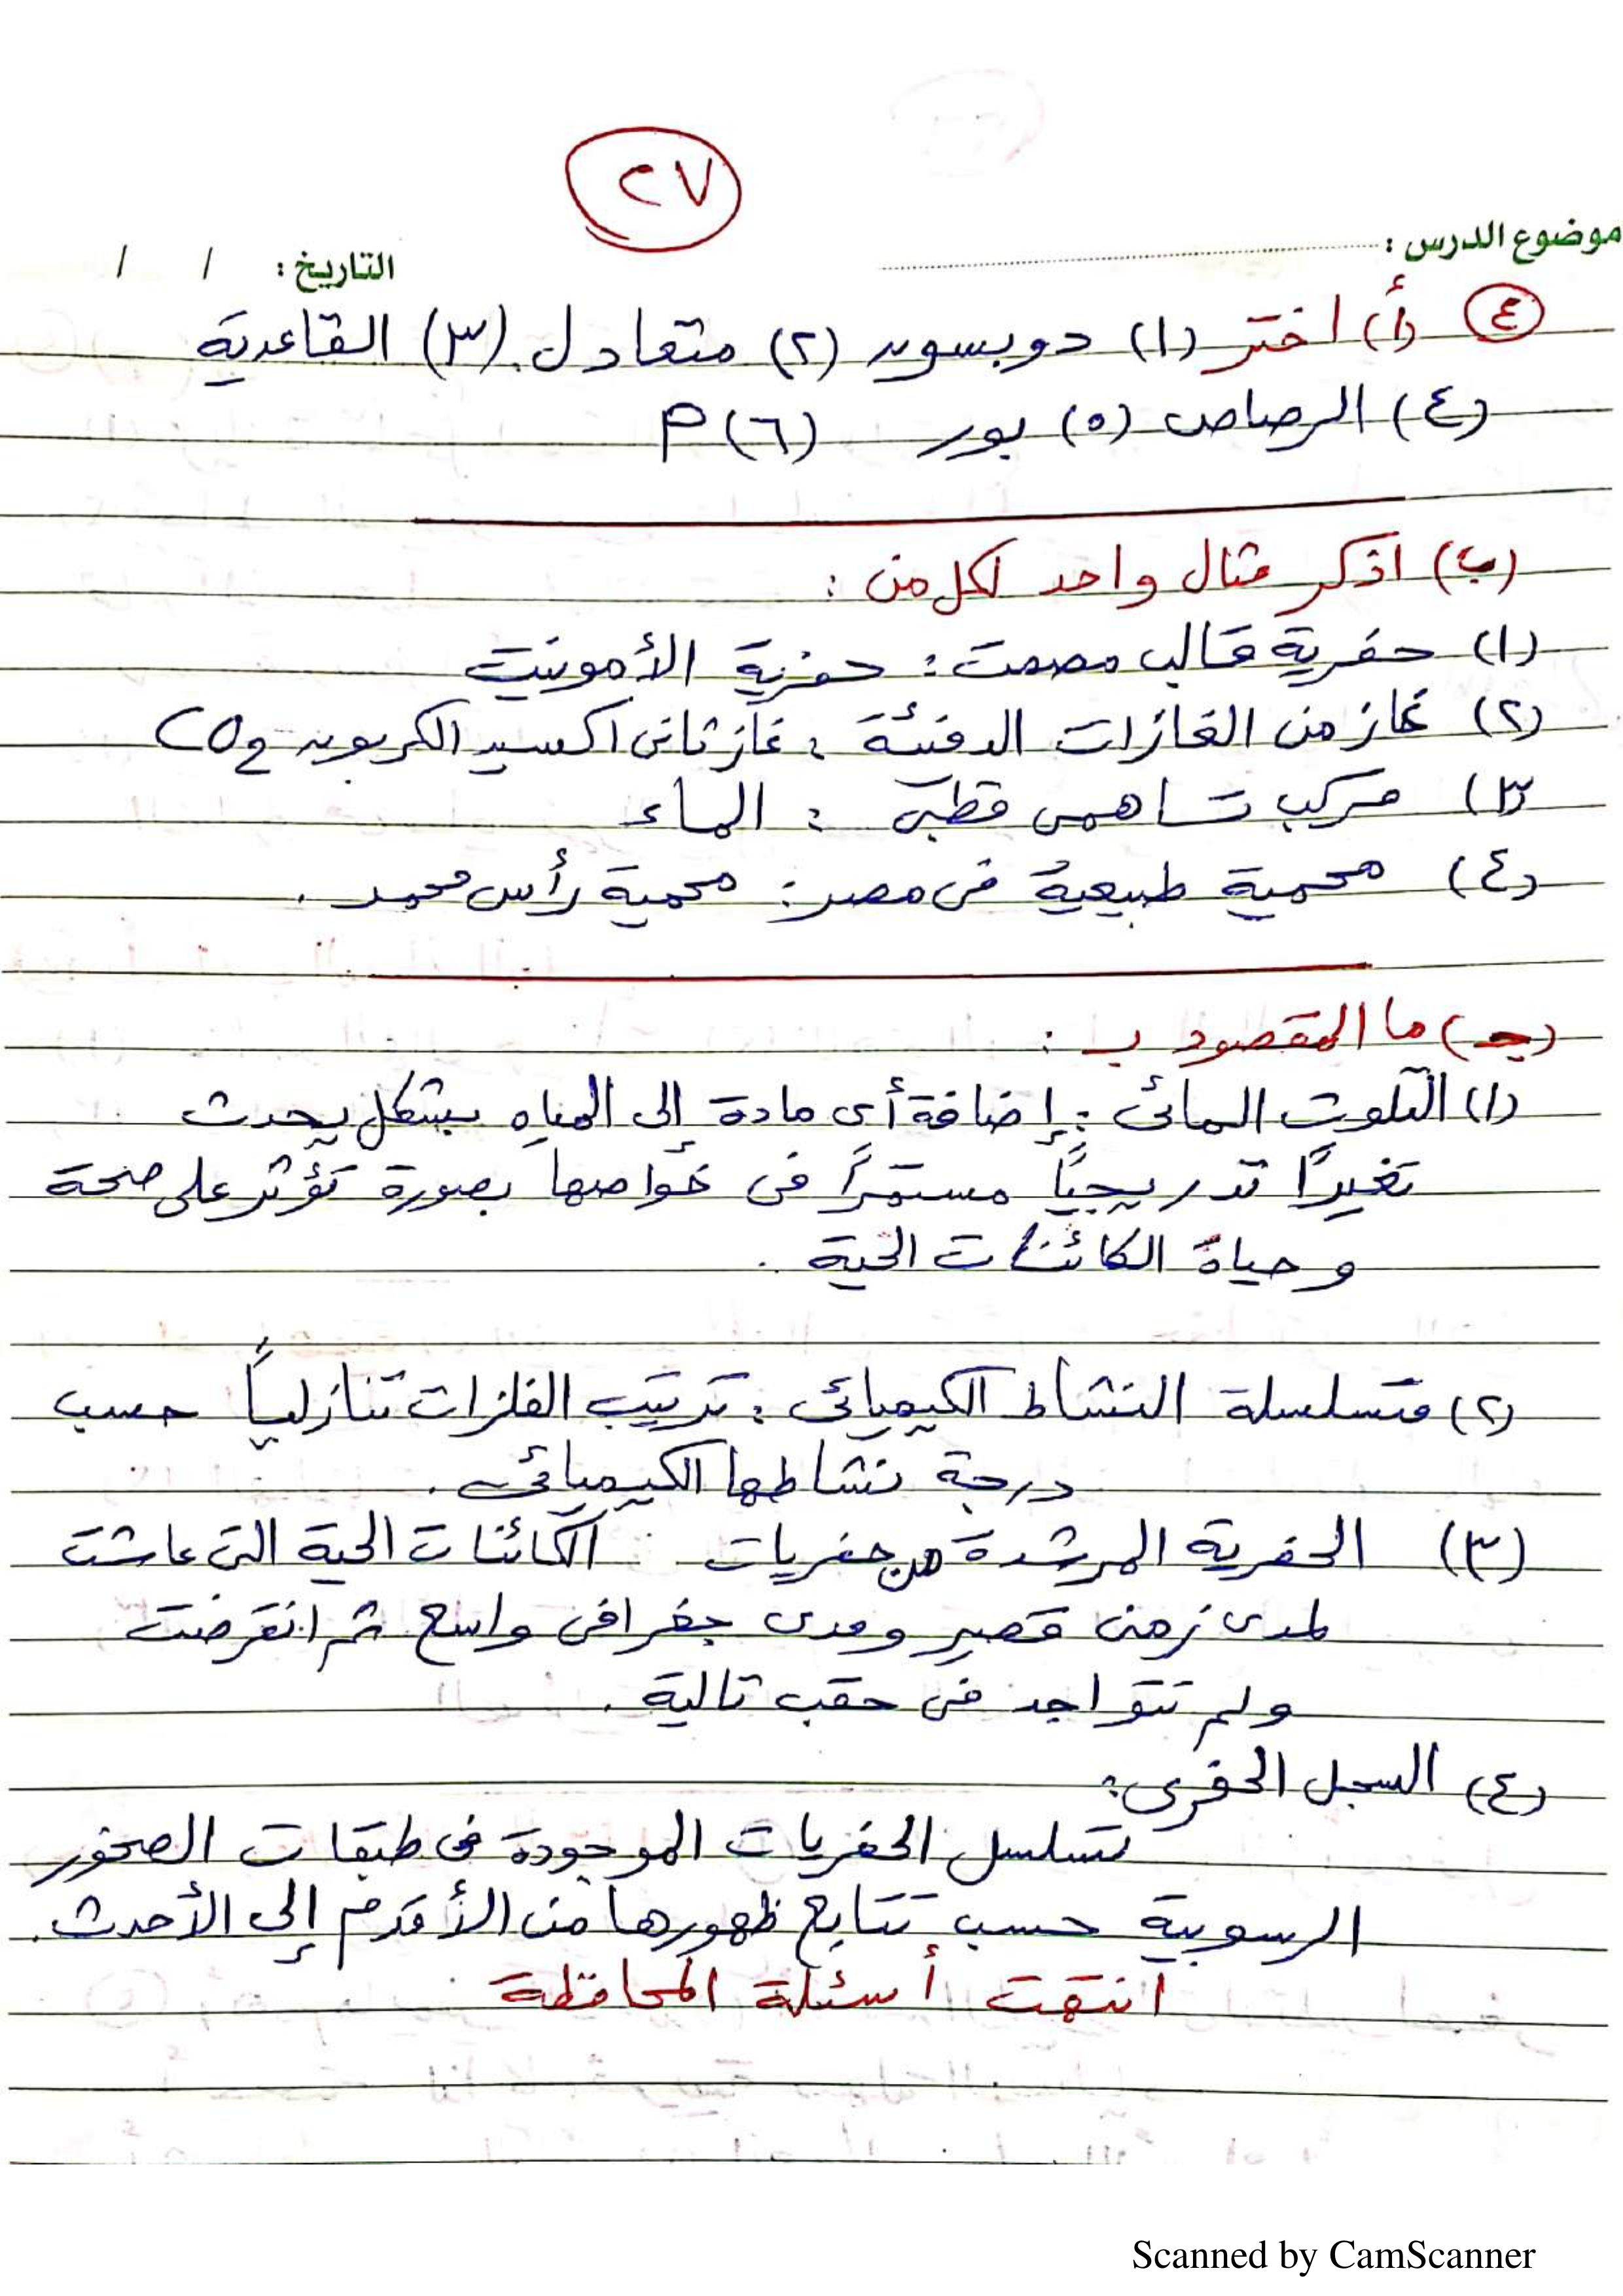 ٢٧
موضوع الدرس : التاريخ : / /
٤ (أ) اختر (١) دوبسون (٢) متعادل (٣) القاعدية
(٤) الرصاص (٥) بور (٦) P
(ب) اذكر مثال واحد لكل من :
(١) حفرية قالب مصمت : حفرية الأمونيت
(٢) غاز من الغازات الدفيئة : غاز ثانى اكسيد الكربون CO2
(٣) مركب تساهمى قطبى : الماء
(٤) محمية طبيعية فى مصر : محمية رأس محمد .
(جـ) ما المقصود بـ :
(١) التلوث المائى : إضافة أى مادة إلى المياه بشكل يحدث
تغيرًا تدريجيًا مستمرًا فى خواصها بصورة تؤثر على صحة
وحياة الكائنات الحية .
(٢) متسلسلة النشاط الكيميائى : ترتيب الفلزات تنازليًا حسب
درجة نشاطها الكيميائى .
(٣) الحفرية المرشدة هى حفريات الكائنات الحية التى عاشت
لمدى زمنى قصير ومدى جغرافى واسع ثم انقرضت
ولم تتواجد فى حقب تالية .
(٤) السجل الحفرى :
تسلسل الحفريات الموجودة فى طبقات الصخور
الرسوبية حسب تتابع ظهورها من الأقدم إلى الأحدث .
انتهت أسئلة المحافظة
Scanned by CamScanner